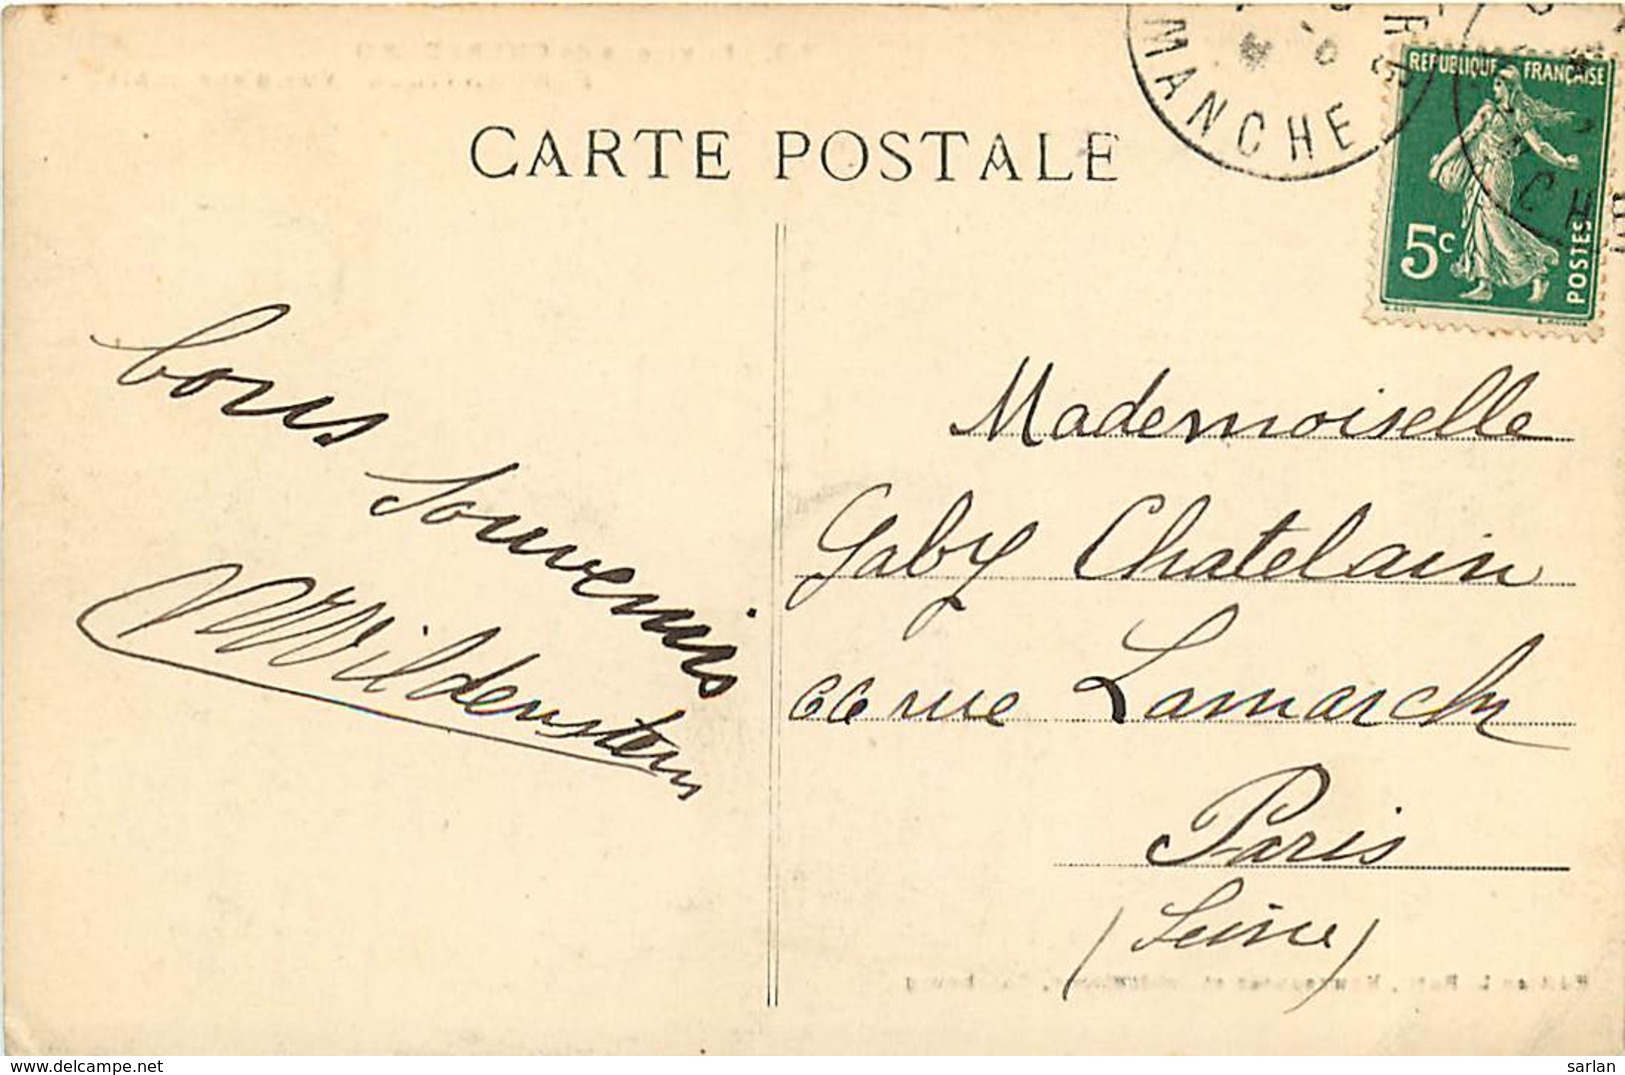 CARTE POSTALE
MANCHE
RÉPUBLIQUE FRANÇAISE
5c
POSTES
bons souvenirs
Wildenstein
Mademoiselle
Gaby Chatelain
66 rue Lamarck
Paris
(Seine)
delcampe.net
sarlan